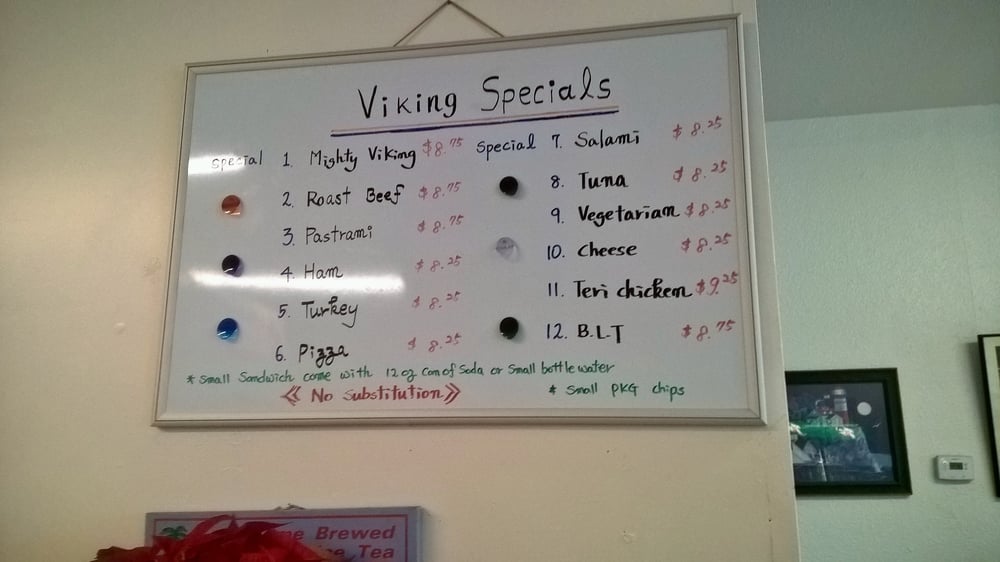 Viking Specials
special 1. Mighty Viking $8.75
2. Roast Beef $8.75
3. Pastrami $8.75
4. Ham $8.25
5. Turkey $8.25
6. Pizza $8.25
Special 7. Salami $8.25
8. Tuna $8.25
9. Vegetarian $8.25
10. Cheese $8.25
11. Teri chicken $9.25
12. B.L.T $8.75
* Small Sandwich come with 12 oz Can of Soda or Small bottle water
<< No Substitution >>
* Small PKG chips
Brewed
Tea